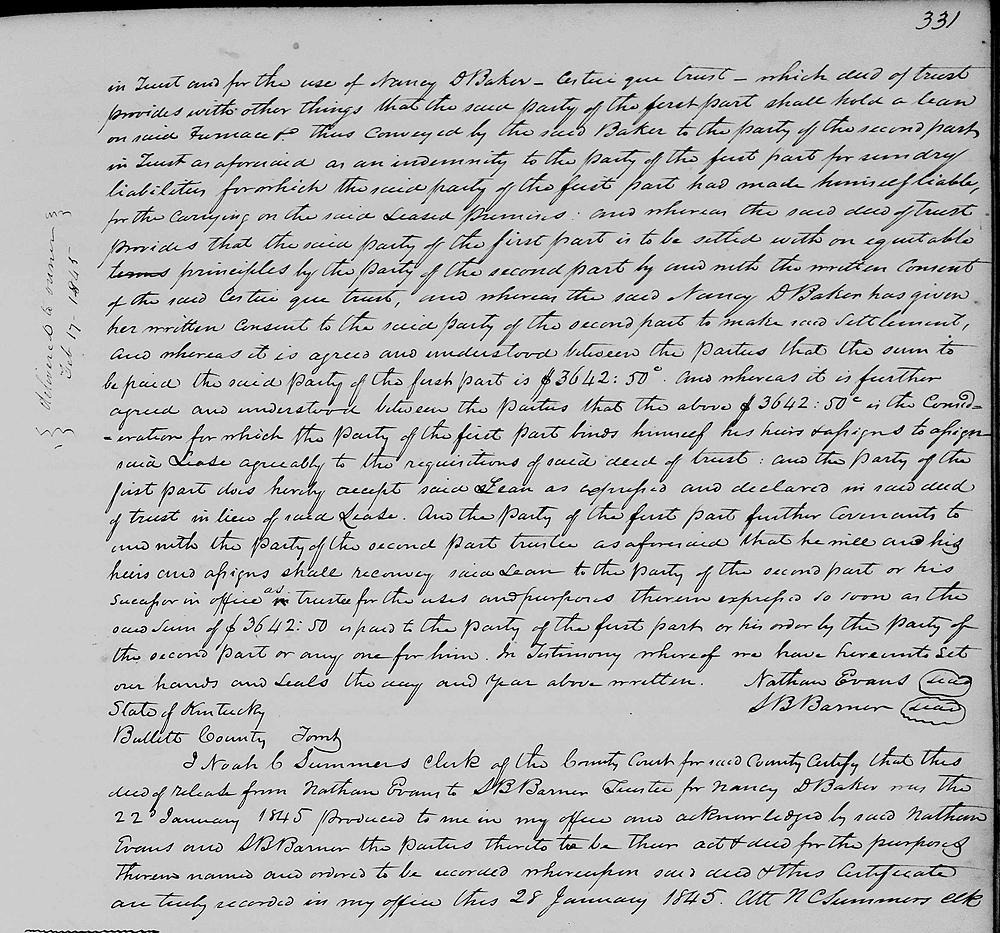 331
in Trust and for the use of Nancy D Baker – Cestui que trust – which deed of trust
provides with other things that the said party of the first part shall hold a lean
on said Furnace &c thus conveyed by the said Baker to the party of the second part
in Trust as aforesaid as an indemnity to the party of the first part for sundry
liabilities for which the said party of the first part had made himself liable,
for the carrying on the said Leased Premises: and whereas the said deed of trust
provides that the said party of the first part is to be setled with on equitable
terms principles by the party of the second part by and with the written consent
of the said Cestui que trust, and whereas the said Nancy D Baker has given
her written consent to the said party of the second part to make said settlement,
and whereas it is agreed and understood between the parties that the sum to
be paid the said party of the first part is $3642:50c. and whereas it is further
agreed and understood between the parties that the above $3642:50c is the Consid-
-eration for which the party of the first part binds himself his heirs & assigns to assign
said Lease agreeably to the requisitions of said deed of trust: and the party of the
first part does hereby accept said Lean as expressed and declared in said deed
of trust in lieu of said Lease. And the party of the first part further covenants to
and with the party of the second part trustee as aforesaid that he will and his
heirs and assigns shall reconvey said Lean to the party of the second part or his
Sucessor in office as in trustee for the uses and purposes therein expressed so soon as the
said sum of $3642:50 is paid to the party of the first part or his order by the party of
the second part or any one for him. In Testimony whereof we have hereunto set
our hands and seals the day and year above written. Nathan Evans (seal)
S B Barner (seal)
State of Kentucky
Bullitt County Towit
I Noah C Summers Clerk of the County Court for said County Certify that this
deed of release from Nathan Evans to S B Barner Trustee for Nancy D Baker was the
22d January 1845 produced to me in my office and acknowledged by said Nathan
Evans and S B Barner the parties thereto to be their act & deed for the purposes
therein named and ordered to be recorded whereupon said deed & this Certificate
are truly recorded in my office this 28 January 1845. Att N C Summers clk
delivered to owner
Feb 17– 1845